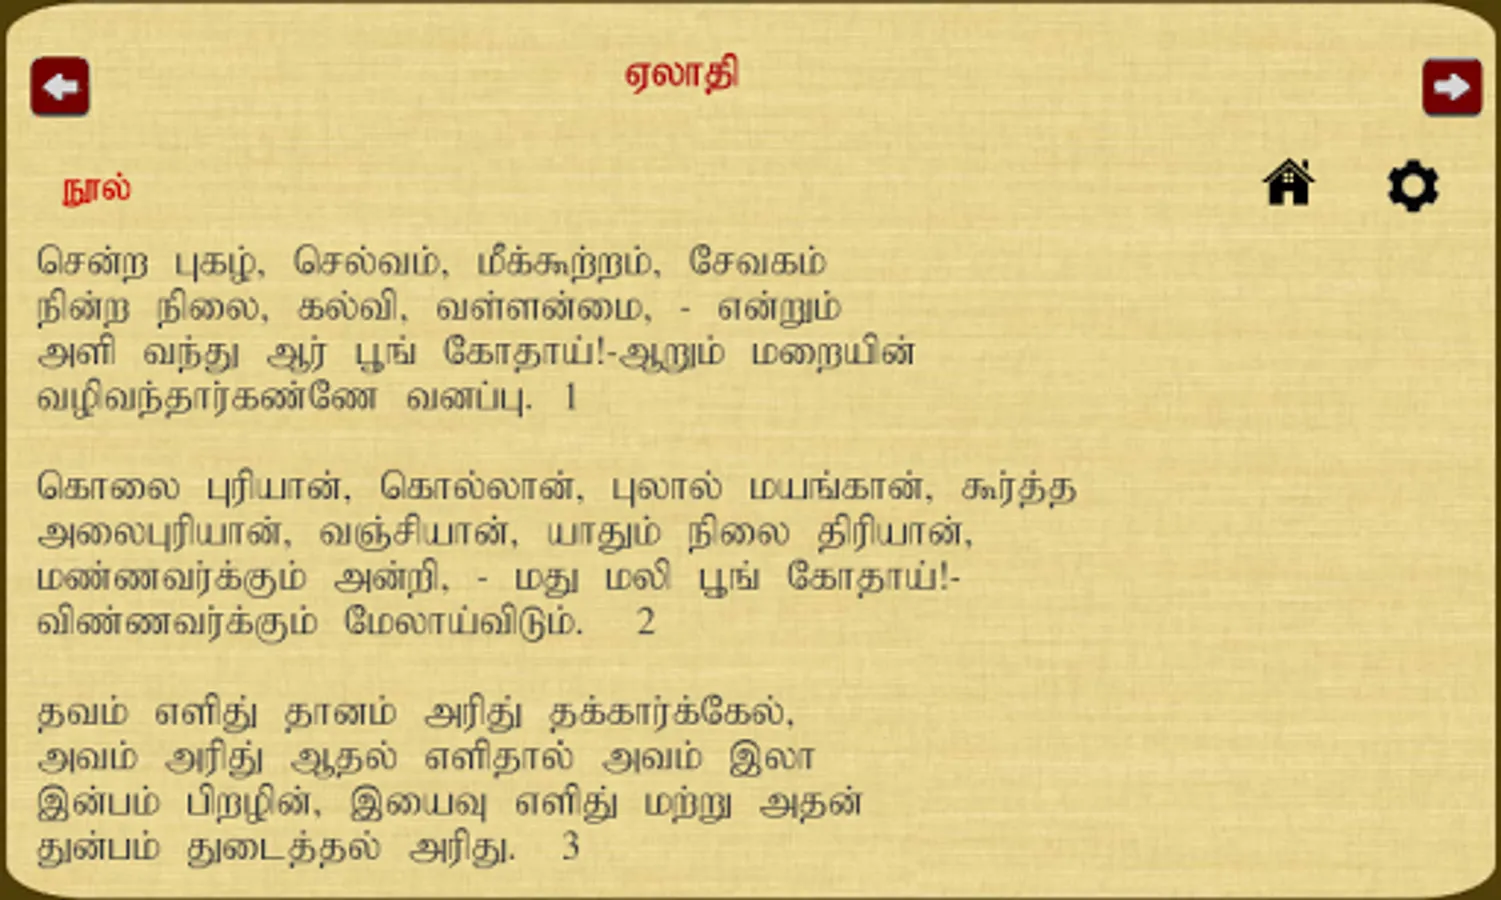 ஏலாதி
நூல்
சென்ற புகழ், செல்வம், மீக்கூற்றம், சேவகம்
நின்ற நிலை, கல்வி, வள்ளன்மை, - என்றும்
அளி வந்து ஆர் பூங் கோதாய்!-ஆறும் மறையின்
வழிவந்தார்கண்ணே வனப்பு. 1
கொலை புரியான், கொல்லான், புலால் மயங்கான், கூர்த்த
அலைபுரியான், வஞ்சியான், யாதும் நிலை திரியான்,
மண்ணவர்க்கும் அன்றி, - மது மலி பூங் கோதாய்!-
விண்ணவர்க்கும் மேலாய்விடும். 2
தவம் எளிது் தானம் அரிது் தக்கார்க்கேல்,
அவம் அரிது் ஆதல் எளிதால் அவம் இலா
இன்பம் பிறழின், இயைவு எளிது் மற்று அதன்
துன்பம் துடைத்தல் அரிது. 3